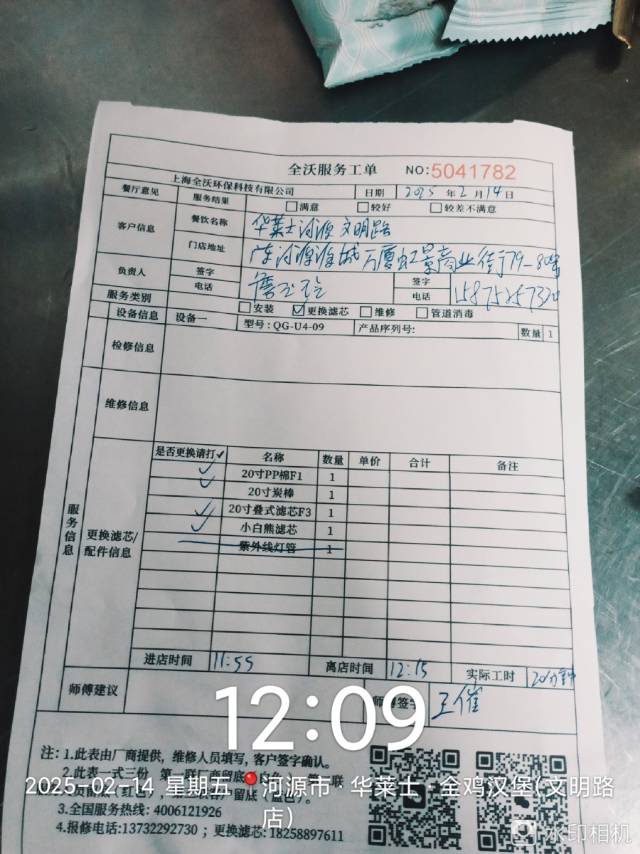 全沃服务工单 NO:5041782
上海全沃环保科技有限公司 日期 2025 年 2 月 14 日
餐厅意见 服务结果 满意 较好 较差不满意
客户信息 餐饮名称 华莱士河源文明路
门店地址 广东河源源城万厦虹景商业街79-80号
负责人 签字 签字
电话 电话
服务类别 安装 ✓更换滤芯 维修 管道消毒
设备信息 设备一 型号: QG-U4-09 产品序列号: 数量 1
检修信息
维修信息
服务信息
更换滤芯/配件信息
是否更换请打✓ 名称 数量 单价 合计 备注
✓ 20寸PP棉F1 1
20寸炭棒 1
✓ 20寸叠式滤芯F3 1
✓ 小白熊滤芯 1
紫外线灯管 1
进店时间 11:55 离店时间 12:15 实际工时 20分钟
师傅建议 师傅签字 王催
12:09
注: 1.此表由厂商提供, 维修人员填写, 客户签字确认。
2.此表一式三份
3.全国服务热线: 4006121926
4.报修电话:13732292730 ; 更换滤芯: 18258897611
2025-02-14 星期五 河源市·华莱士·全鸡汉堡(文明路店)
水印相机